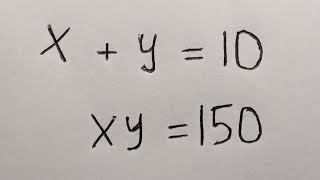 x + y = 10
xy = 150